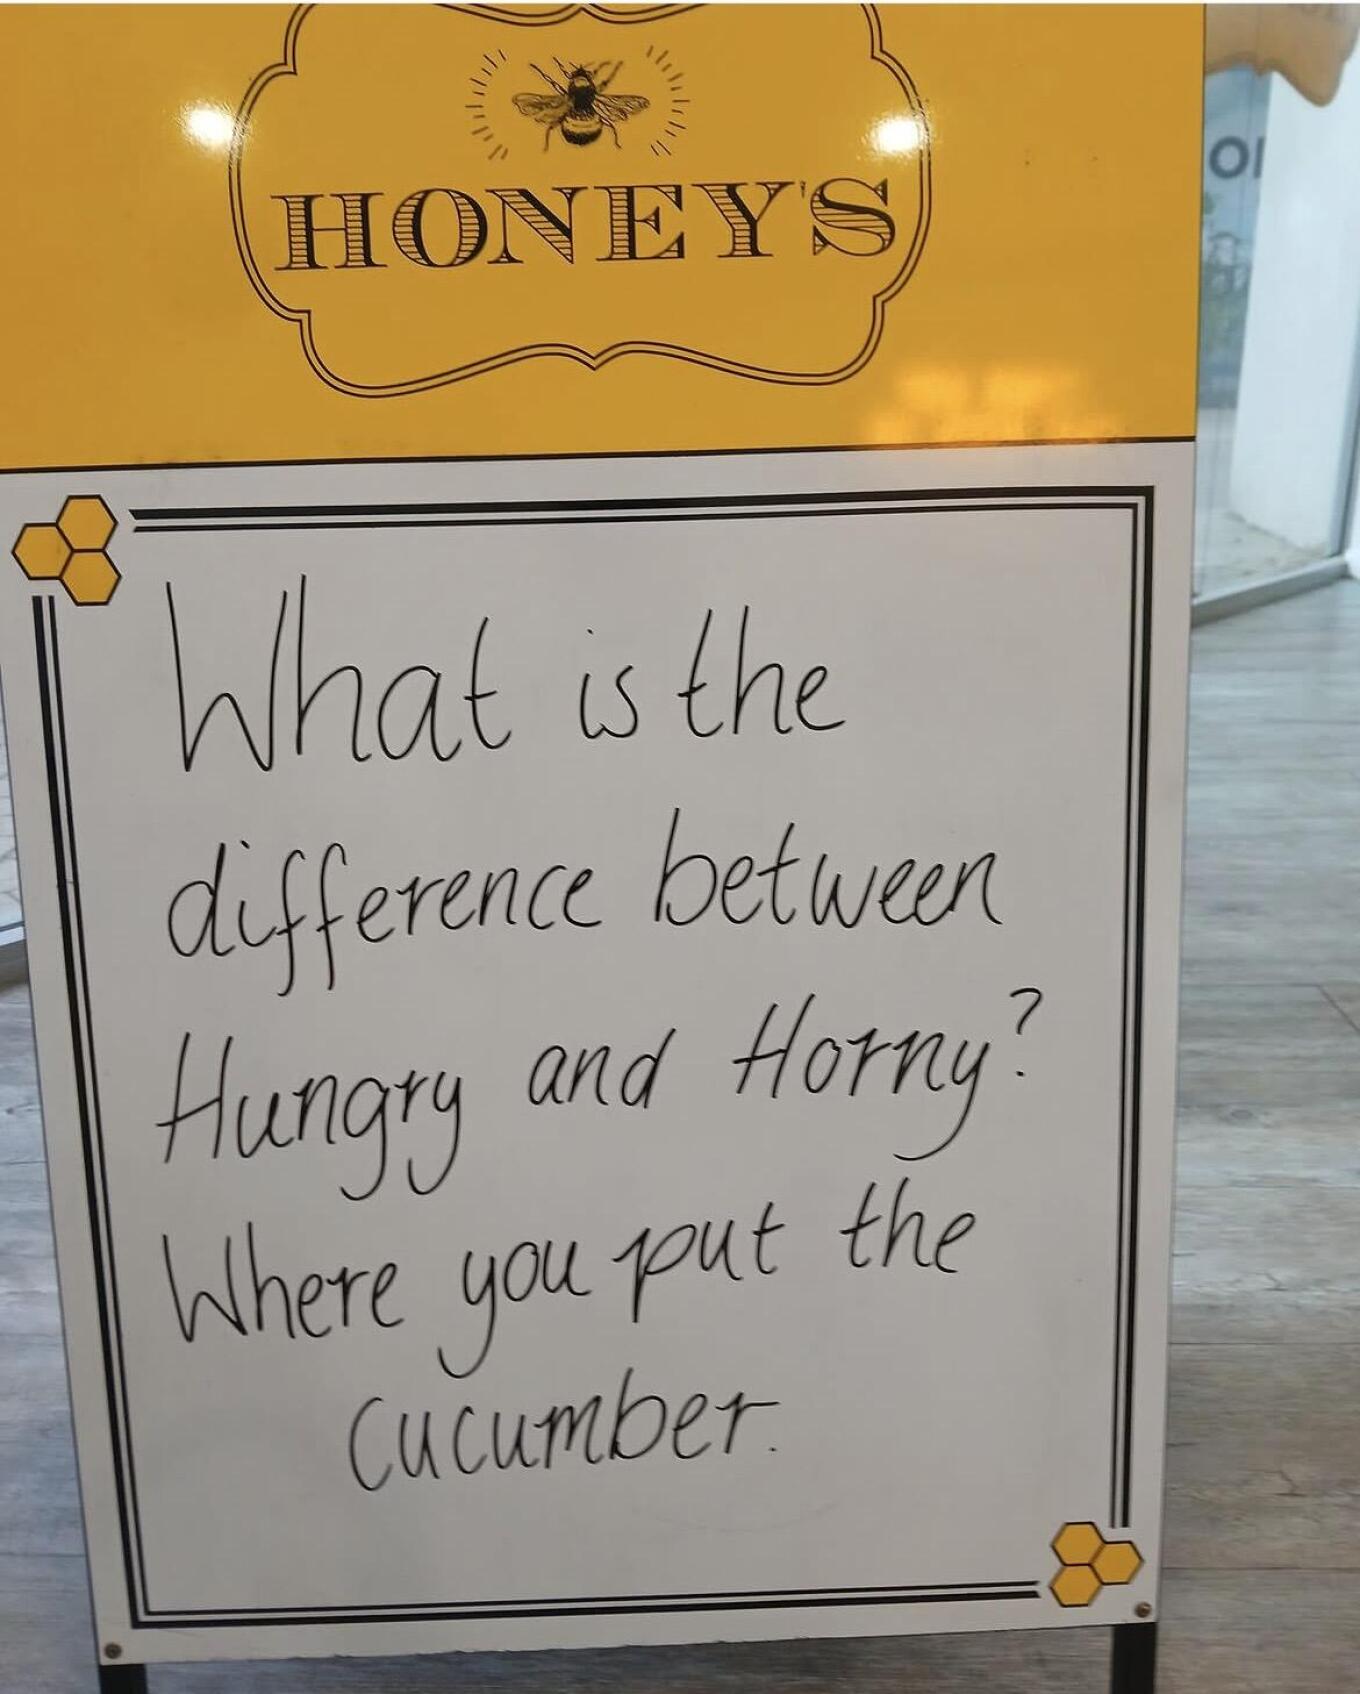 HONEY'S
What is the
difference between
Hungry and Horny?
Where you put the
cucumber.